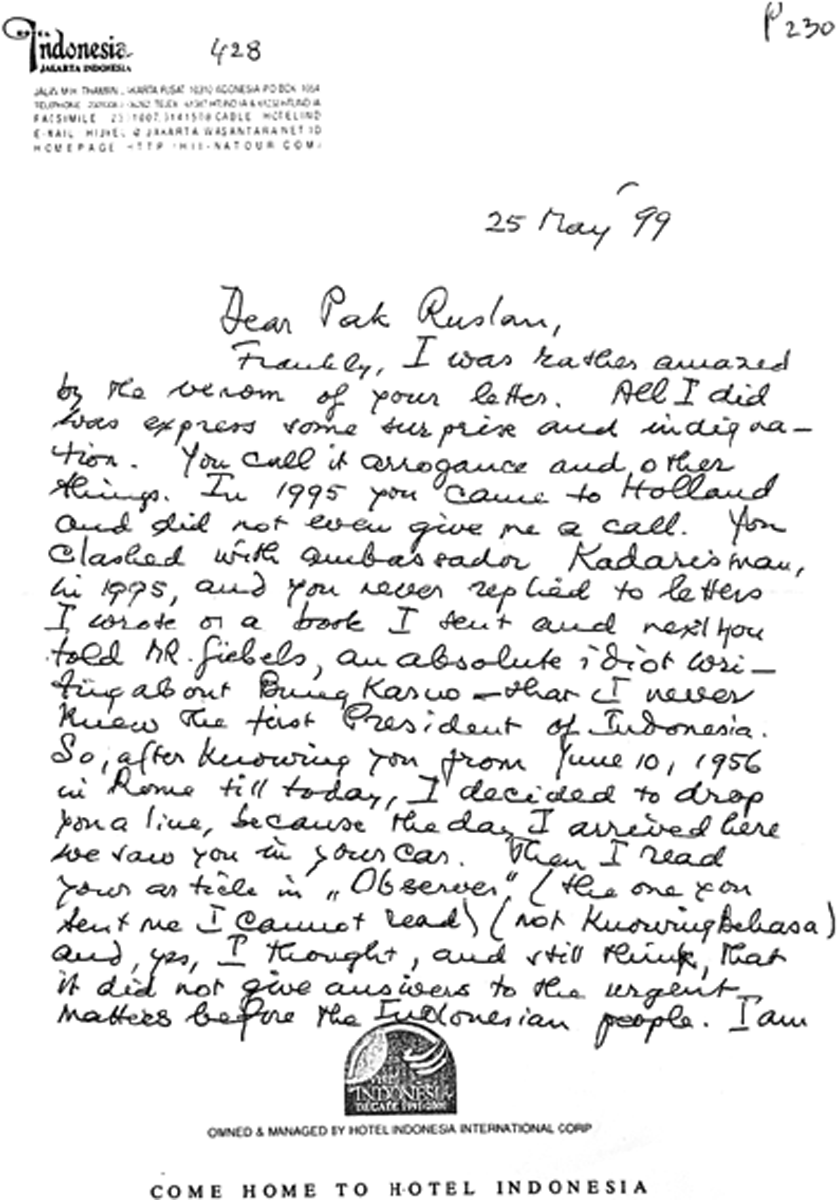 HOTEL
Indonesia
JAKARTA INDONESIA
428
P 230
JALAN M.H. THAMRIN, JAKARTA PUSAT 10310 INDONESIA PO BOX 1054
TELEPHONE TELEX
FACSIMILE CABLE HOTELIND
E-MAIL @ JAKARTA WASANTARA NET ID
HOMEPAGE HTTP HII-NATOUR COM/
25 May '99
Dear Pak Ruslan,
Frankly, I was rather amazed
by the venom of your letter. All I did
was express some surprise and indigna-
tion. You call it arrogance and other
things. In 1995 you came to Holland
and did not even give me a call. You
clashed with ambassador Kadarisman,
in 1995, and you never replied to letters
I wrote or a book I sent and next you
told MR. Giebels, an absolute idiot wri-
ting about Bung Karno - that I never
knew the first President of Indonesia.
So, after knowing you from June 10, 1956
in Rome till today, I decided to drop
you a line, because the day I arrived here
we saw you in your car. Then I read
your article in „Observer" (the one you
sent me I cannot read) (not knowing Bahasa)
and, yes, I thought, and still think, that
it did not give answers to the urgent
matters before the Indonesian people. I am
VISIT
INDONESIA
DECADE 1991-2000
OWNED & MANAGED BY HOTEL INDONESIA INTERNATIONAL CORP
COME HOME TO HOTEL INDONESIA